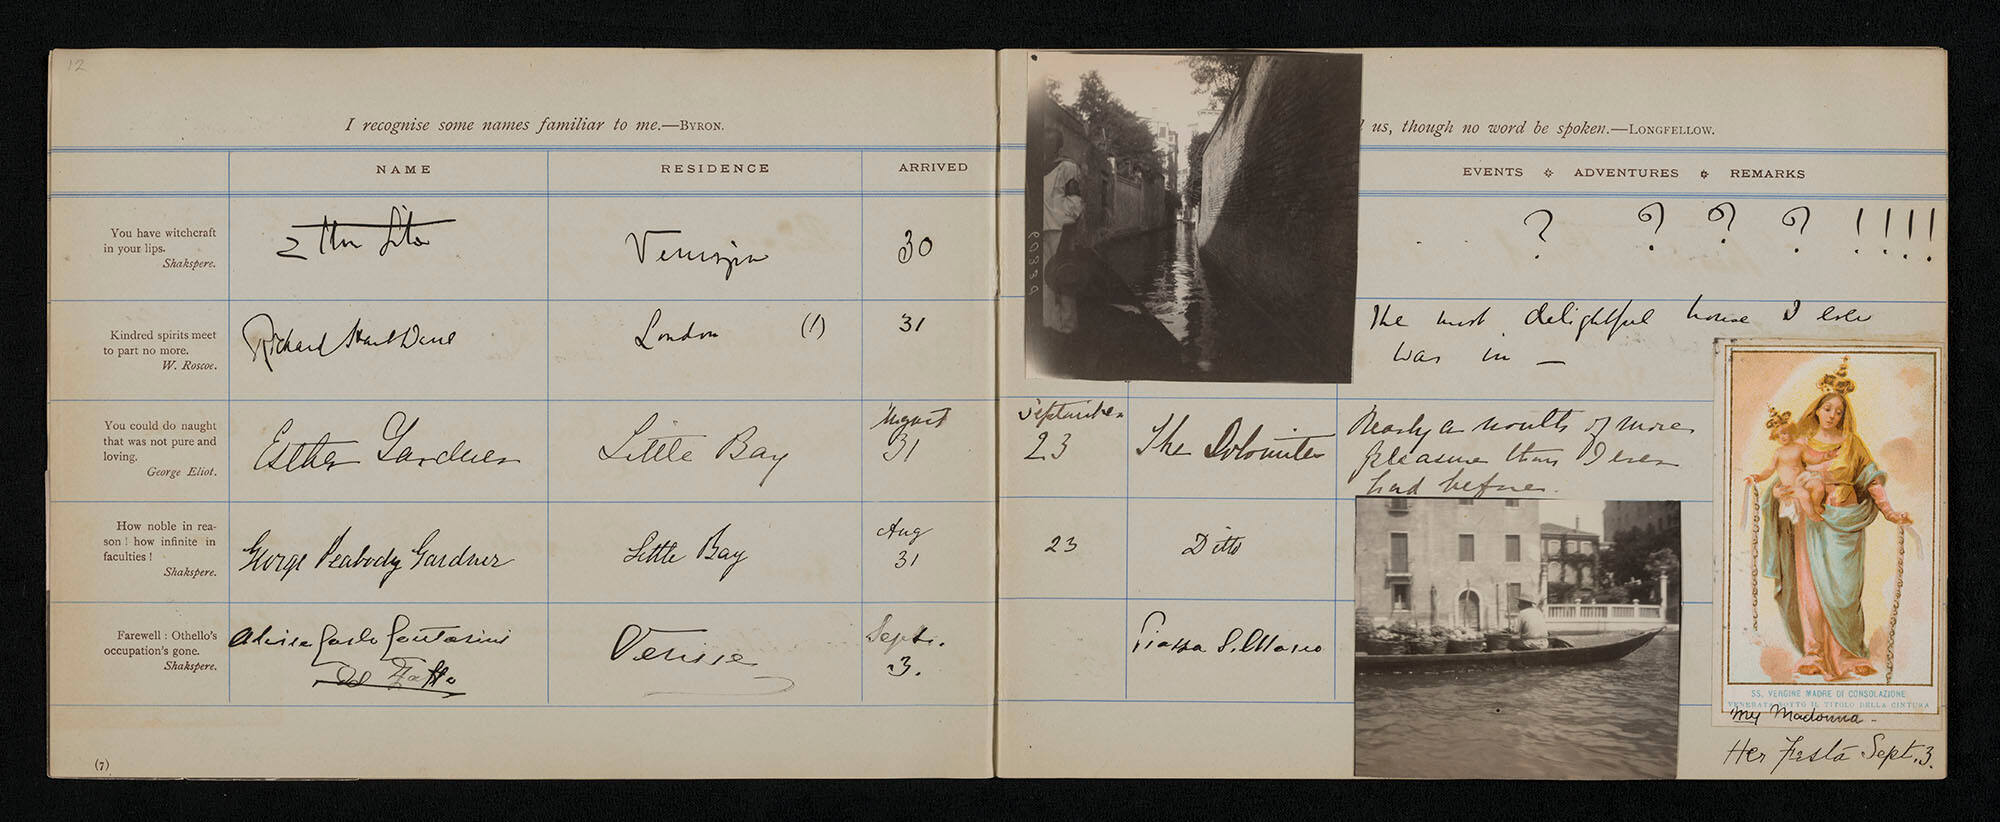 12
I recognise some names familiar to me.—BYRON.
NAME
RESIDENCE
ARRIVED
You have witchcraft
in your lips.
Shakspere.
30
Kindred spirits meet
to part no more.
W. Roscoe.
Richard
London (1)
31
You could do naught
that was not pure and
loving.
George Eliot.
Esther Gardner
Little Bay
August
31
How noble in rea-
son! how infinite in
faculties!
Shakspere.
George Peabody Gardner
Little Bay
Aug
31
Farewell: Othello's
occupation's gone.
Shakspere.
Venise
Sept.
3.
(7)
us, though no word be spoken.—LONGFELLOW.
EVENTS ADVENTURES REMARKS
. . ? ? ? ? ! ! ! !
The most delightful house I ever
was in —
September
23
The Dolomites
Nearly a month of more
pleasure than I ever
had before.
23
Ditto
Piazza S. Marco
SS. VERGINE MADRE DI CONSOLAZIONE
VENERATA SOTTO IL TITOLO DELLA CINTURA
My Madonna -
Her Festa Sept. 3.